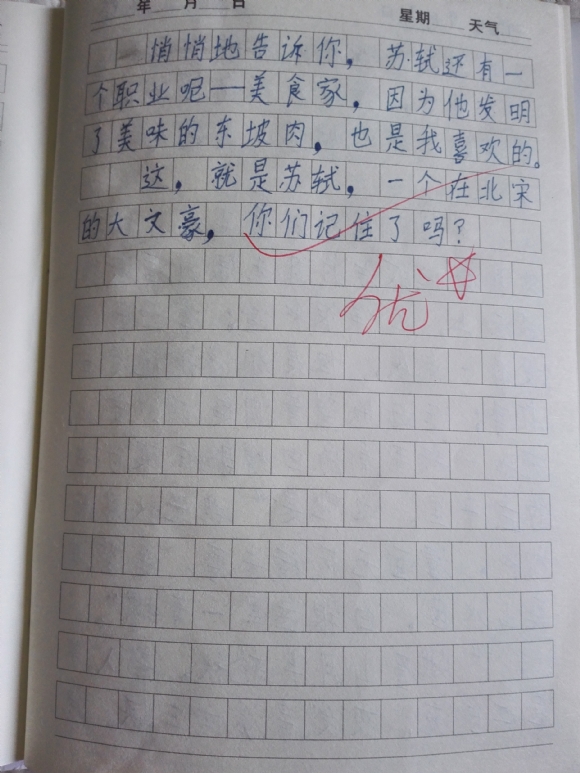 年 月 日 星期 天气
悄悄地告诉你，苏轼还有一
个职业呢—美食家，因为他发明
了美味的东坡肉，也是我喜欢的。
这，就是苏轼，一个在北宋
的大文豪，你们记住了吗？
优